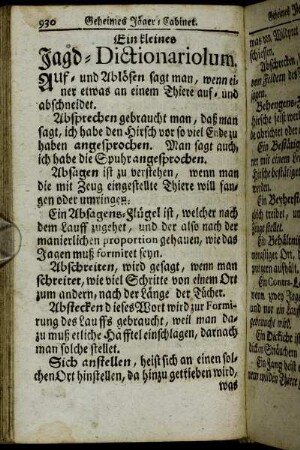 930 Geheimes Jäger-Cabinet.
Ein kleines
Jagd-Dictionariolum.
Auf- und Ablösen sagt man, wenn ei-
ner etwas an einem Thiere auf- und
abschneidet.
Absprechen gebraucht man, daß man
sagt, ich habe den Hirsch vor so viel Ende zu
haben angesprochen. Man sagt auch,
ich habe die Spuhr angesprochen.
Absagen ist zu verstehen, wenn man
die mit Zeug eingestellte Thiere will fan-
gen oder umringen:
Ein Absagens-Flügel ist, welcher nach
dem Lauff zugehet, und der also nach der
manierlichen proportion gehauen, wie das
Jagen muß formiret seyn.
Abschreiten, wird gesagt, wenn man
schreitet, wie viel Schritte von einem Ort
zum andern, nach der Länge der Tücher.
Abstecken dieses Wort wird zur Formi-
rung des Lauffs gebraucht, weil man da-
zu muß etliche Hafftel einschlagen, darnach
man solche stellet.
Sich anstellen, heist sich an einen sol-
chen Ort hinstellen, da hinzu getrieben wird,
was